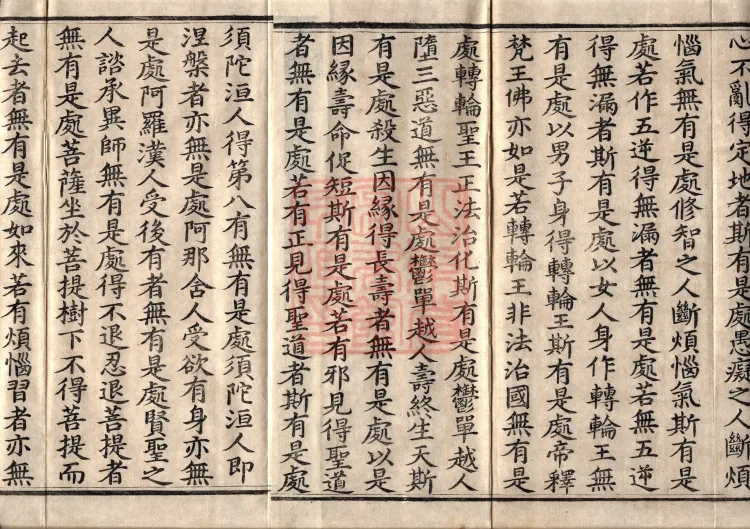 心不亂得定地者斯有是處愚癡之人斷煩
惱氣無有是處修智之人斷煩惱氣斯有是
處若作五逆得無漏者無有是處若無五逆
得無漏者斯有是處以女人身作轉輪王無
有是處以男子身得轉輪王斯有是處帝釋
梵王佛亦如是若轉輪王非法治國無有是
處轉輪聖王正法治化斯有是處鬱單越人
墮三惡道無有是處鬱單越人壽終生天斯
有是處殺生因緣得長壽者無有是處以是
因緣壽命促短斯有是處若有邪見得聖道
者無有是處若有正見得聖道者斯有是處
須陀洹人得第八有無有是處須陀洹人即
涅槃者亦無是處阿那含人受欲有身亦無
是處阿羅漢人受後有者無有是處賢聖之
人諮承異師無有是處得不退忍退菩提者
無有是處菩薩坐於菩提樹下不得菩提而
起去者無有是處如來若有煩惱習者亦無